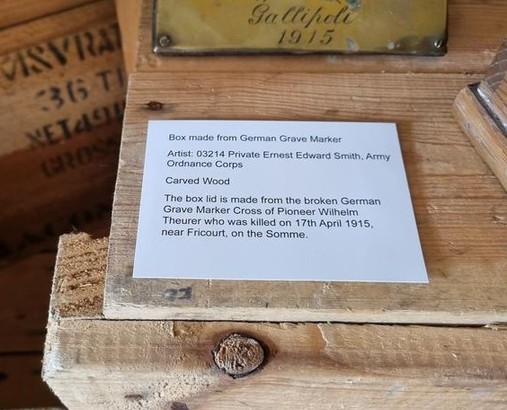 Gallipoli
1915
36 TI
Box made from German Grave Marker
Artist: 03214 Private Ernest Edward Smith, Army
Ordnance Corps
Carved Wood
The box lid is made from the broken German
Grave Marker Cross of Pioneer Wilhelm
Theurer who was killed on 17th April 1915,
near Fricourt, on the Somme.